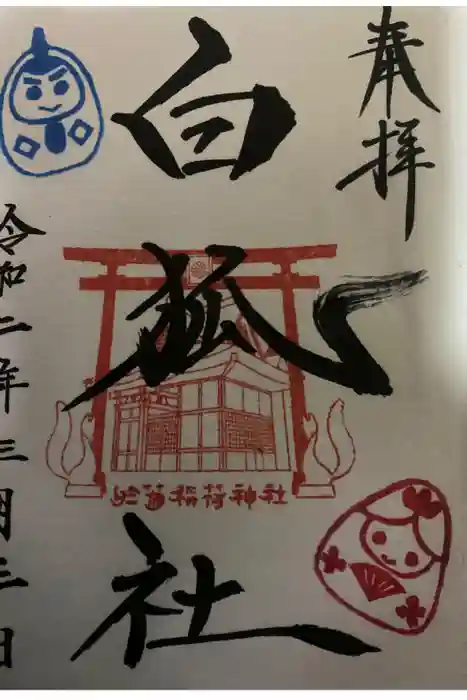 奉拝
白狐社
於菊稲荷神社
令和二年三月三日